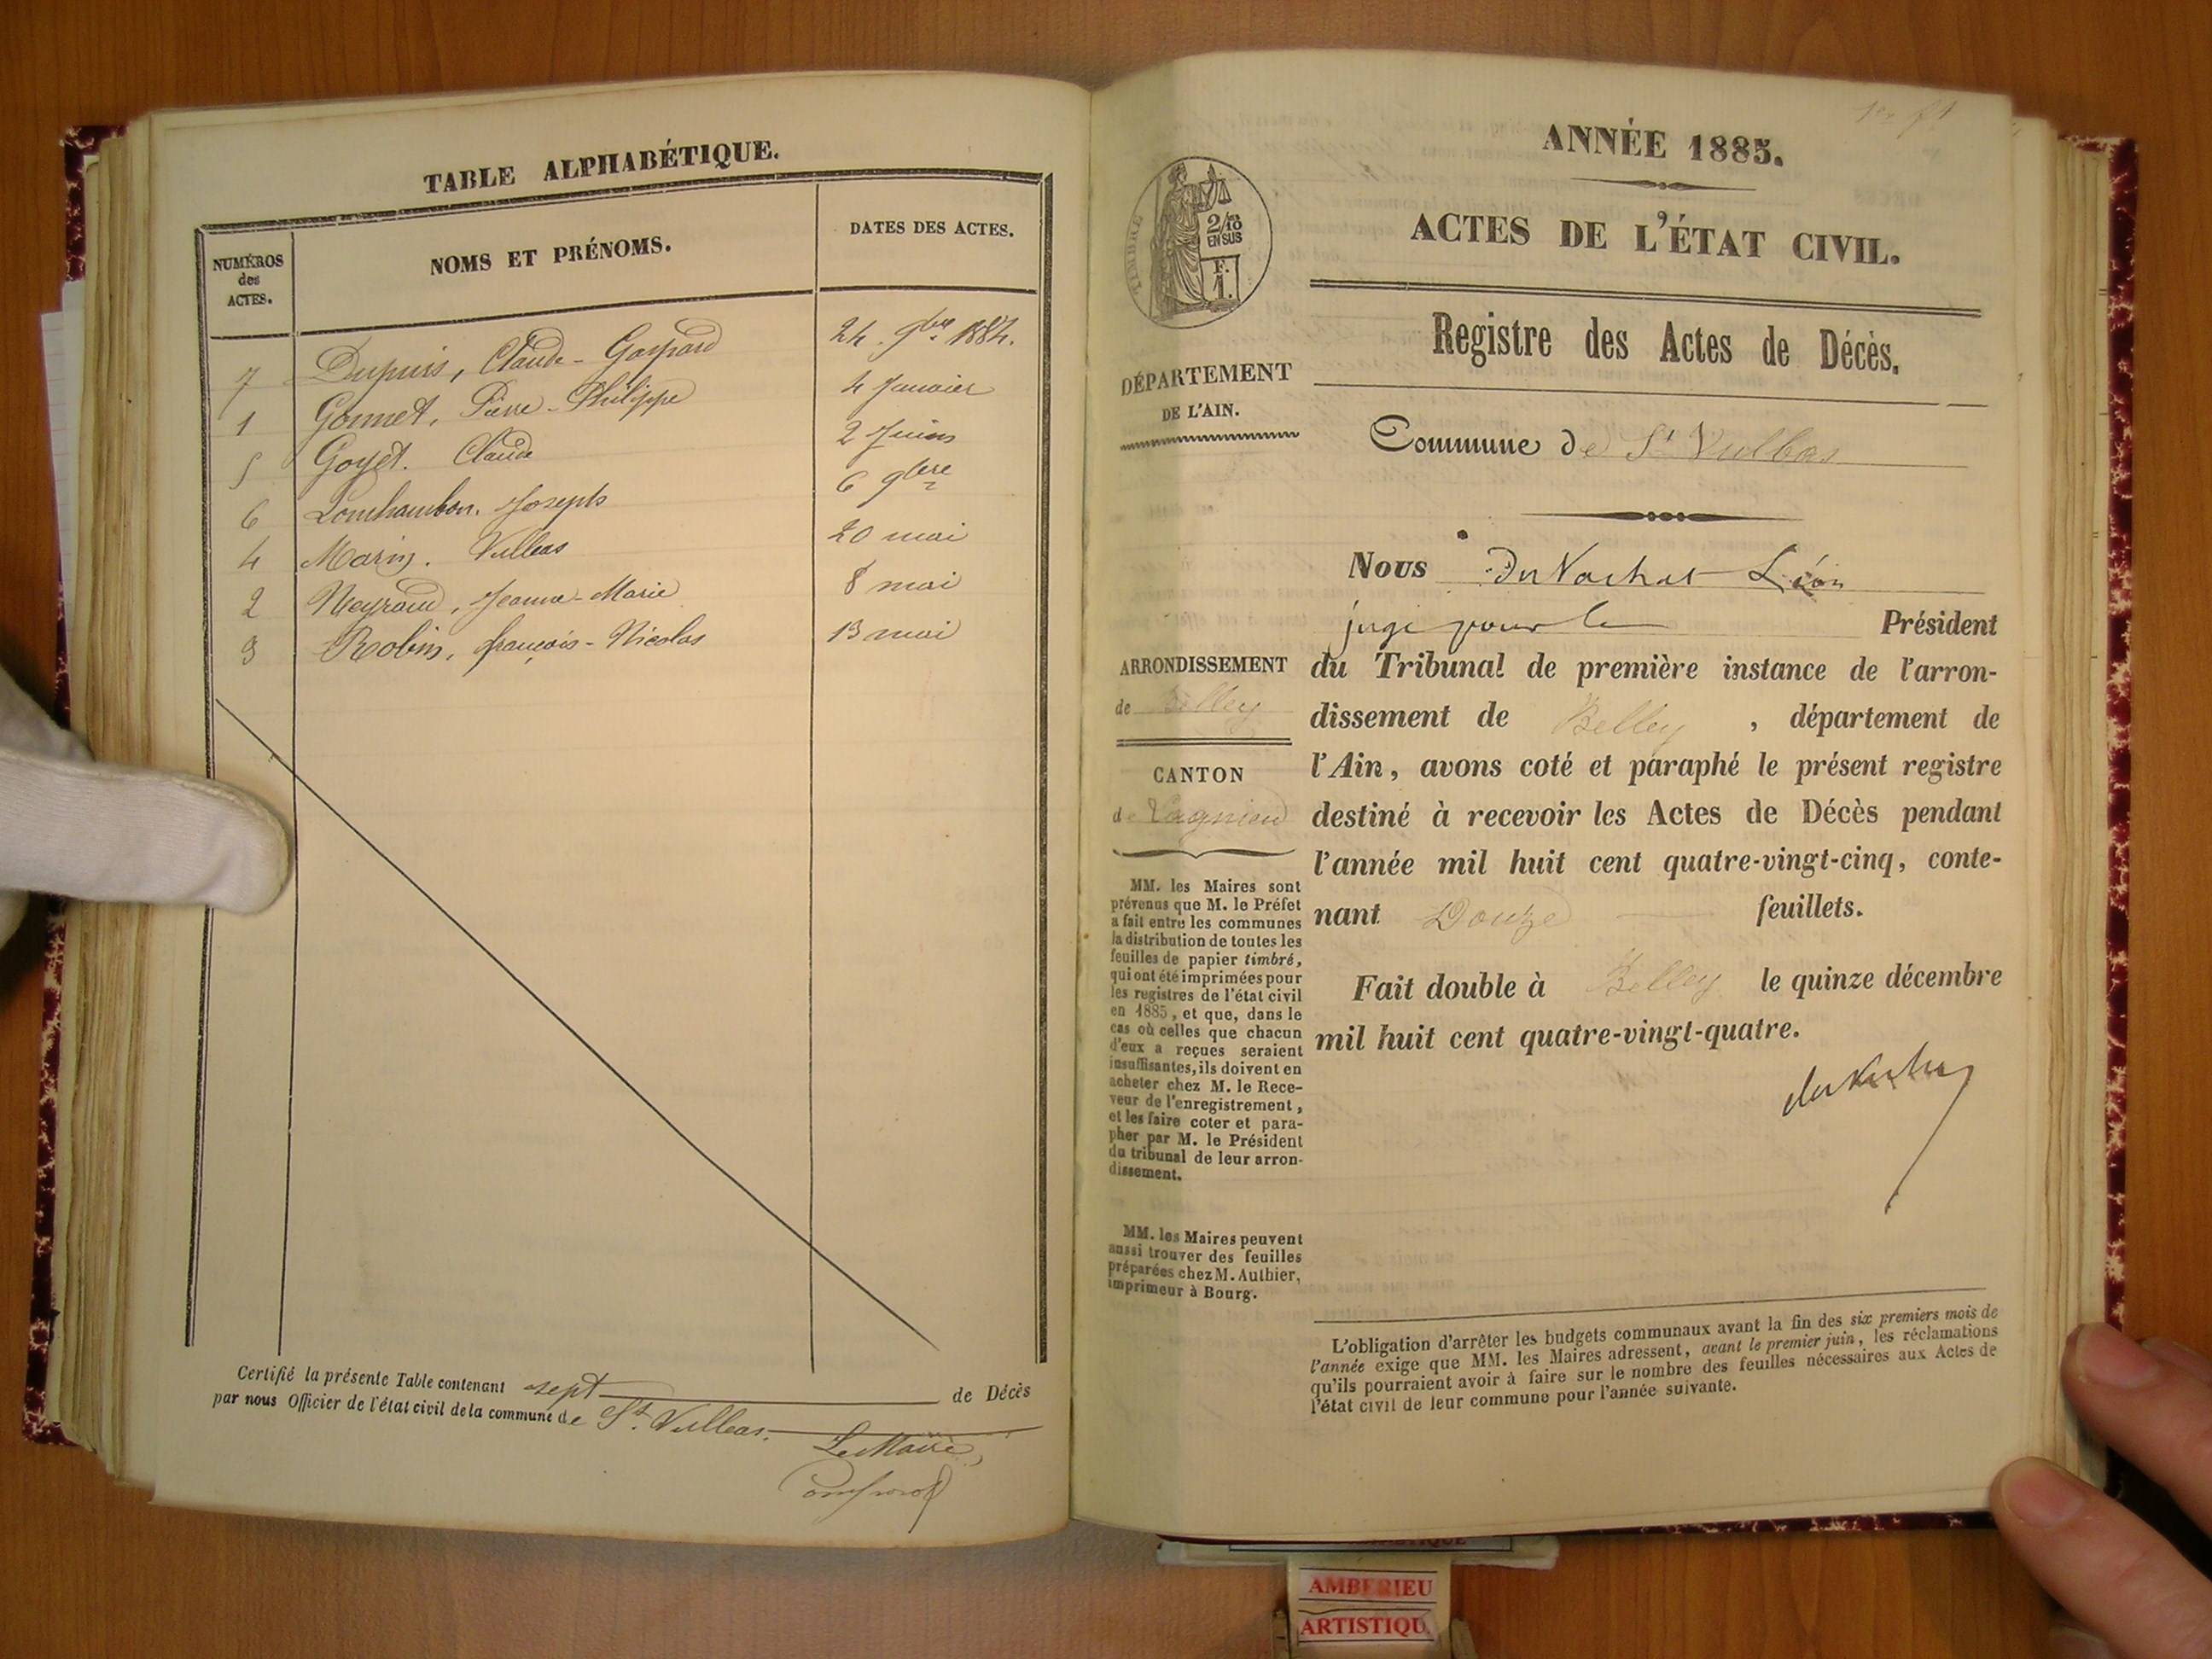 TABLE ALPHABÉTIQUE.
NUMÉROS
des
ACTES.
NOMS ET PRÉNOMS.
DATES DES ACTES.
7 Dupuis, Claude-Gaspard 24 9bre 1884.
1 Gonnet, Pierre-Philippe 4 Janvier
5 Goyet. Claude 2 Juin
6 Lonchambon, Joseph 6 9bre
4 Marin. Vulbas 20 mai
2 Neyraud, Jeanne-Marie 8 mai
3 Robin, françois-Nicolas 13 mai
Certifié la présente Table contenant sept de Décès
par nous Officier de l'état civil de la commune de St. Vulbas.
Le Maire,
ANNÉE 1885.
ACTES DE L'ÉTAT CIVIL.
TIMBRE
2/10
EN SUS
F.
1.
Registre des Actes de Décès.
DÉPARTEMENT
DE L'AIN.
Commune de St Vulbas
Nous Du Vachat Léon
juge pour le Président
du Tribunal de première instance de l'arron-
dissement de Belley, département de
l'Ain, avons coté et paraphé le présent registre
destiné à recevoir les Actes de Décès pendant
l'année mil huit cent quatre-vingt-cinq, conte-
nant Douze feuillets.
Fait double à Belley le quinze décembre
mil huit cent quatre-vingt-quatre.
ARRONDISSEMENT
de Belley
CANTON
de Lagnieu
MM. les Maires sont
prévenus que M. le Préfet
a fait entre les communes
la distribution de toutes les
feuilles de papier timbré,
qui ont été imprimées pour
les registres de l'état civil
en 1885, et que, dans le
cas où celles que chacun
d'eux a reçues seraient
insuffisantes, ils doivent en
acheter chez M. le Rece-
veur de l'enregistrement,
et les faire coter et para-
pher par M. le Président
du tribunal de leur arron-
dissement.
MM. les Maires peuvent
aussi trouver des feuilles
préparées chez M. Authier,
imprimeur à Bourg.
L'obligation d'arrêter les budgets communaux avant la fin des six premiers mois de
l'année exige que MM. les Maires adressent, avant le premier juin, les réclamations
qu'ils pourraient avoir à faire sur le nombre des feuilles nécessaires aux Actes de
l'état civil de leur commune pour l'année suivante.
AMBERIEU
ARTISTIQU